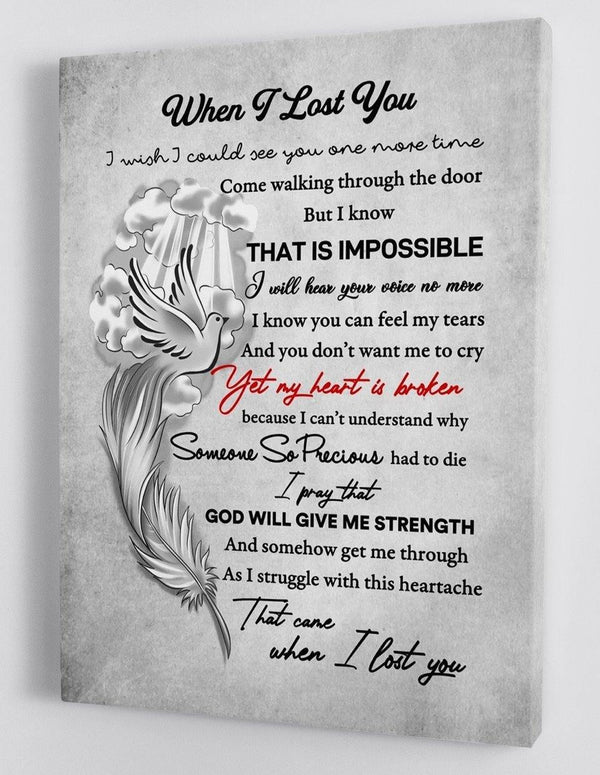 When I Lost You
I wish I could see you one more time
Come walking through the door
But I know
THAT IS IMPOSSIBLE
I will hear your voice no more
I know you can feel my tears
And you don't want me to cry
Yet my heart is broken
because I can't understand why
Someone So Precious had to die
I pray that
GOD WILL GIVE ME STRENGTH
And somehow get me through
As I struggle with this heartache
That came
when I lost you